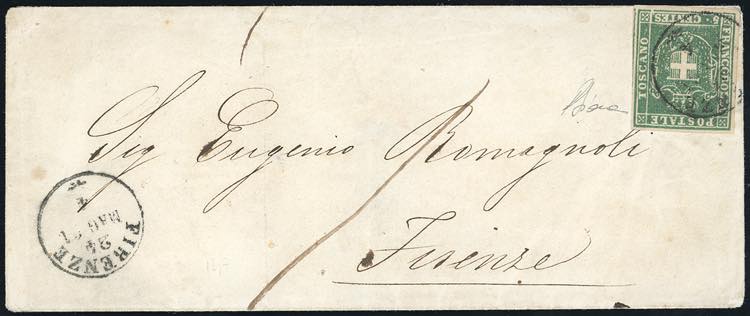 FRANCOBOLLO
POSTALE
TOSCANO
5 CENTES
Sig Eugenio Romagnoli
Firenze
FIRENZE
24
MAG 61